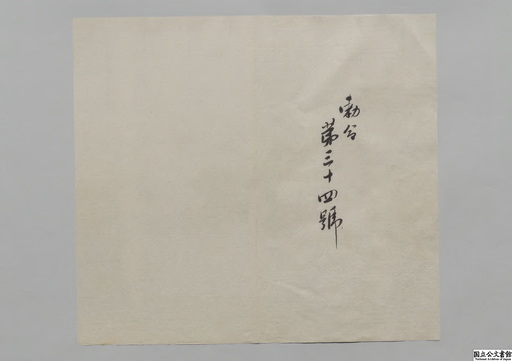 勅令
第三十四號
国立公文書館
National Archives of Japan